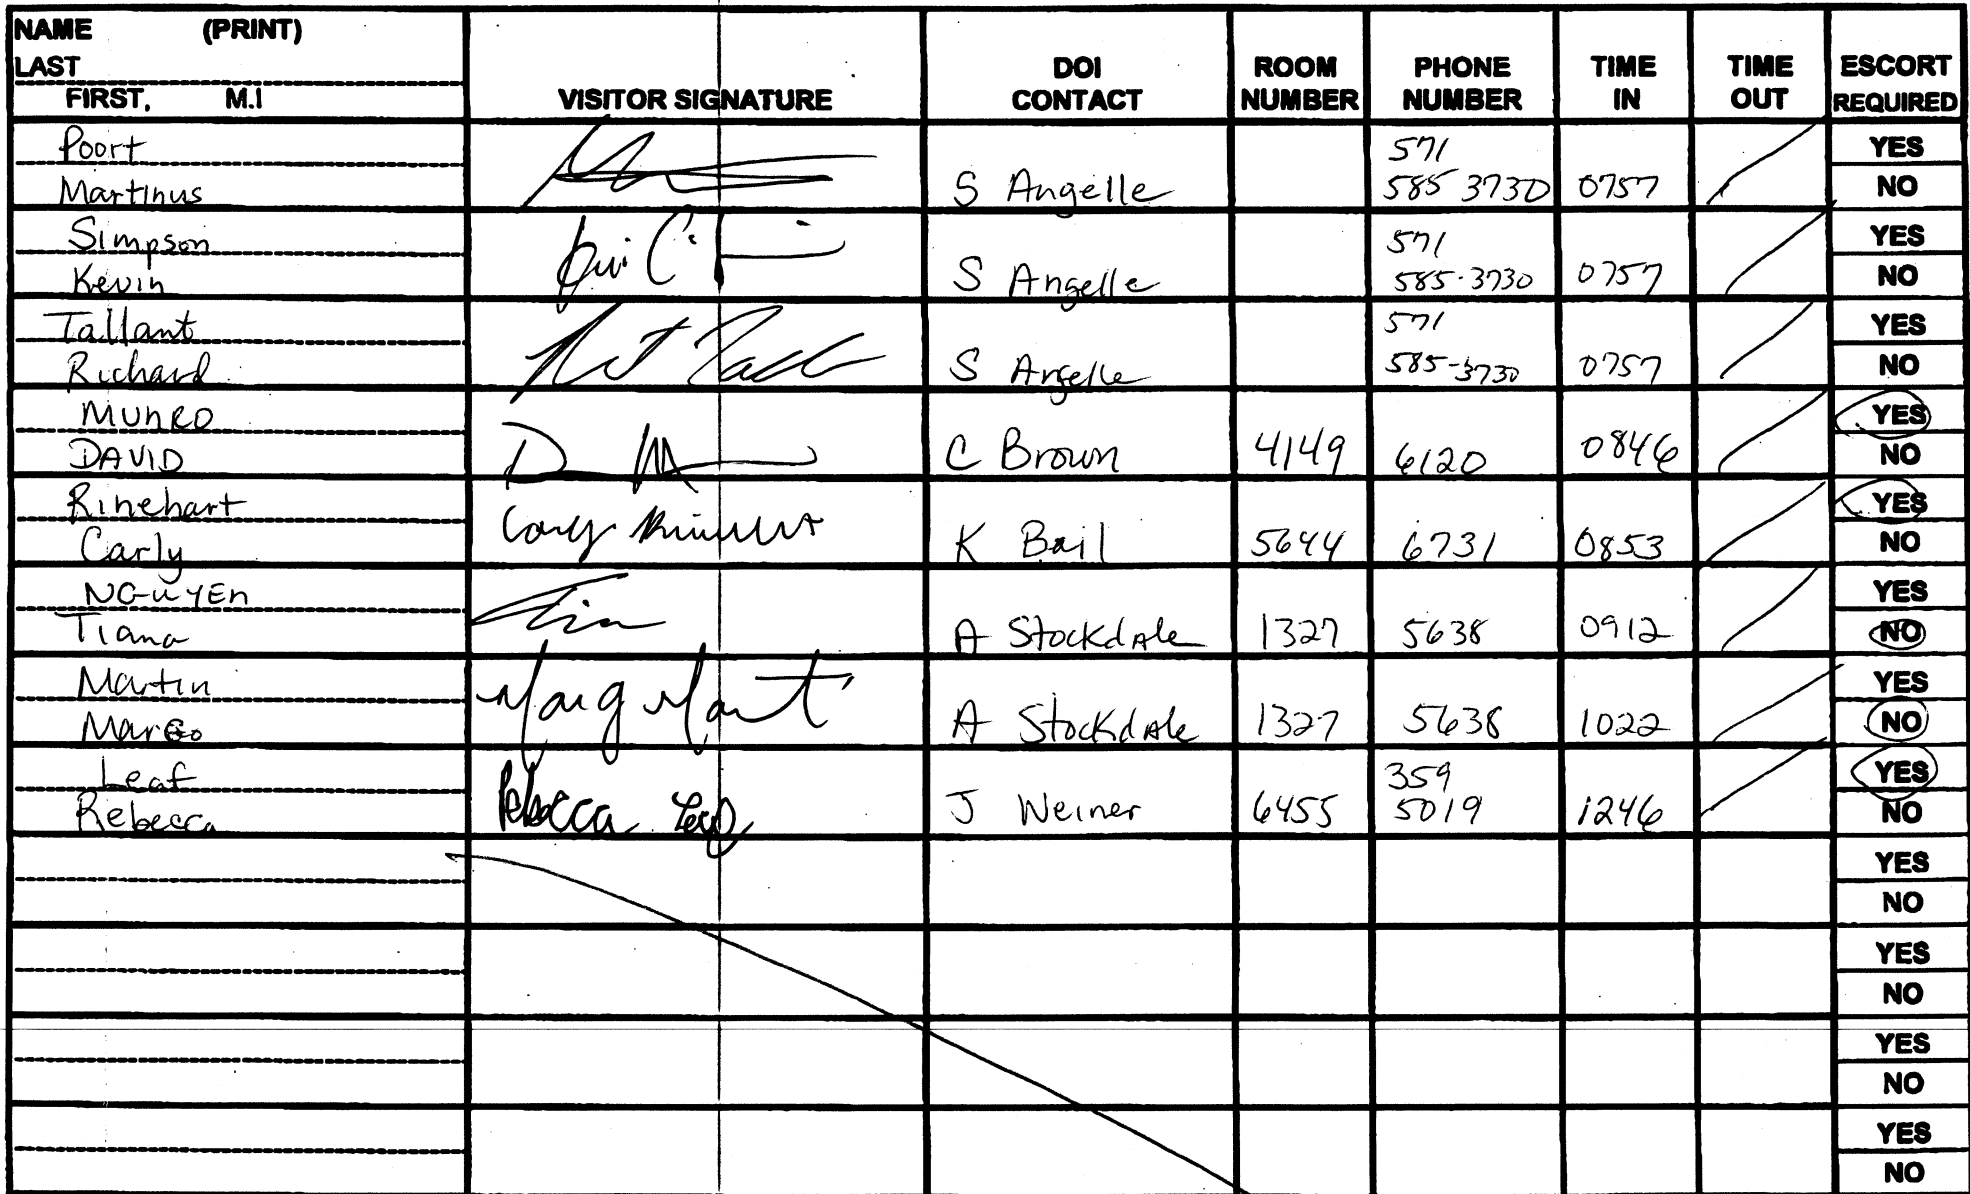 NAME (PRINT)
LAST
FIRST, M.I
VISITOR SIGNATURE
DOI CONTACT
ROOM NUMBER
PHONE NUMBER
TIME IN
TIME OUT
ESCORT REQUIRED
Poort 571 YES
Martinus S Angelle 585 3730 0757 NO
Simpson 571 YES
Kevin S Angelle 585-3730 0757 NO
Tallant 571 YES
Richard S Angelle 585-3730 0757 NO
MUNRO YES
DAVID C Brown 4149 6120 0846 NO
Rinehart YES
Carly K Bail 5644 6731 0853 NO
NGUYEN YES
Tiana A Stockdale 1327 5638 0912 NO
Martin YES
Margo A Stockdale 1327 5638 1022 NO
Leaf 359 YES
Rebecca Rebecca Leaf J Weiner 6455 5019 1246 NO
YES
NO
YES
NO
YES
NO
YES
NO